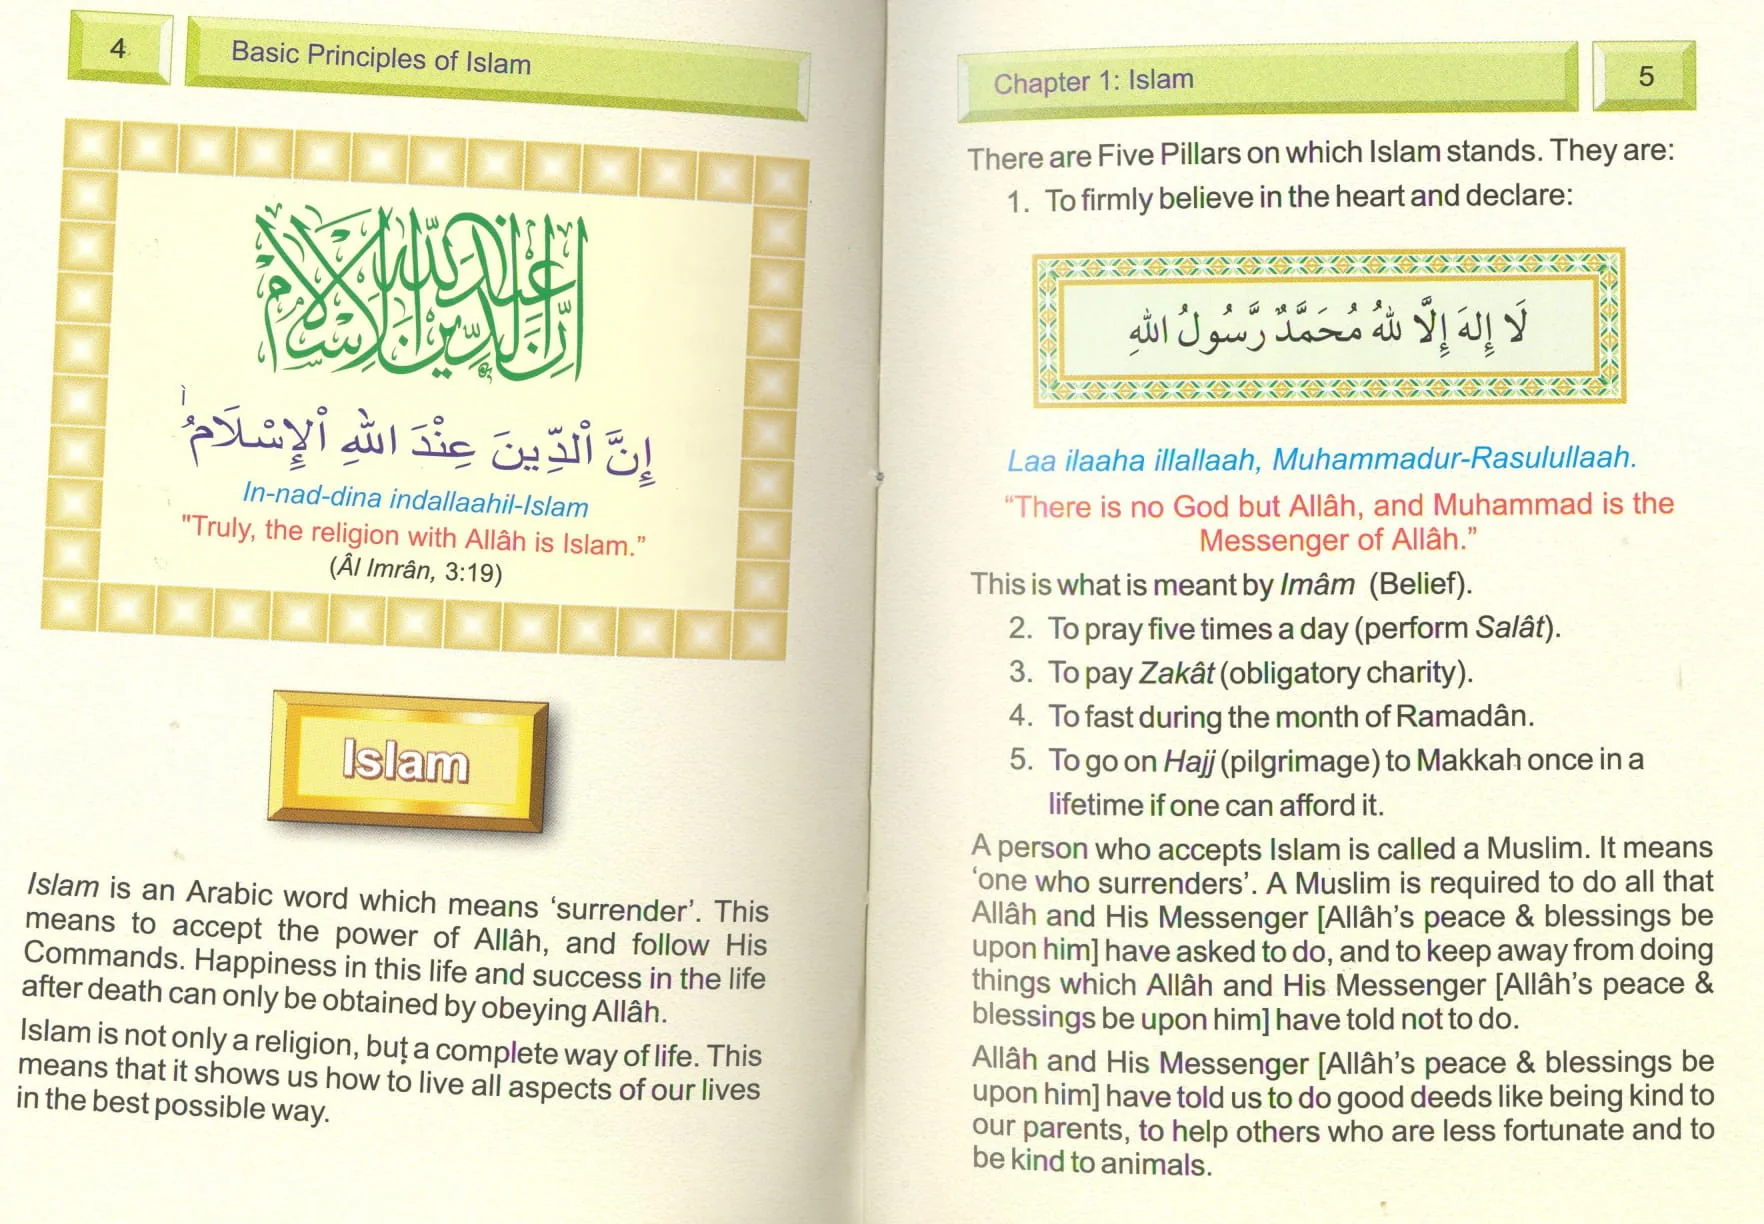 4
Basic Principles of Islam
إن الدين عند الله الإسلام
إِنَّ ٱلدِّينَ عِنْدَ اللهِ ٱلْإِسْلَامُ
In-nad-dina indallaahil-Islam
"Truly, the religion with Allâh is Islam.”
(Âl Imrân, 3:19)
Islam
Islam is an Arabic word which means ‘surrender’. This
means to accept the power of Allâh, and follow His
Commands. Happiness in this life and success in the life
after death can only be obtained by obeying Allâh.
Islam is not only a religion, but a complete way of life. This
means that it shows us how to live all aspects of our lives
in the best possible way.
Chapter 1: Islam
5
There are Five Pillars on which Islam stands. They are:
1. To firmly believe in the heart and declare:
لَا إِلهَ إِلَّا للهُ مُحَمَّدٌ رَّسُولُ اللهِ
Laa ilaaha illallaah, Muhammadur-Rasulullaah.
“There is no God but Allâh, and Muhammad is the
Messenger of Allâh.”
This is what is meant by Imâm (Belief).
2. To pray five times a day (perform Salât).
3. To pay Zakât (obligatory charity).
4. To fast during the month of Ramadân.
5. To go on Hajj (pilgrimage) to Makkah once in a
lifetime if one can afford it.
A person who accepts Islam is called a Muslim. It means
‘one who surrenders’. A Muslim is required to do all that
Allâh and His Messenger [Allâh’s peace & blessings be
upon him] have asked to do, and to keep away from doing
things which Allâh and His Messenger [Allâh’s peace &
blessings be upon him] have told not to do.
Allâh and His Messenger [Allâh’s peace & blessings be
upon him] have told us to do good deeds like being kind to
our parents, to help others who are less fortunate and to
be kind to animals.